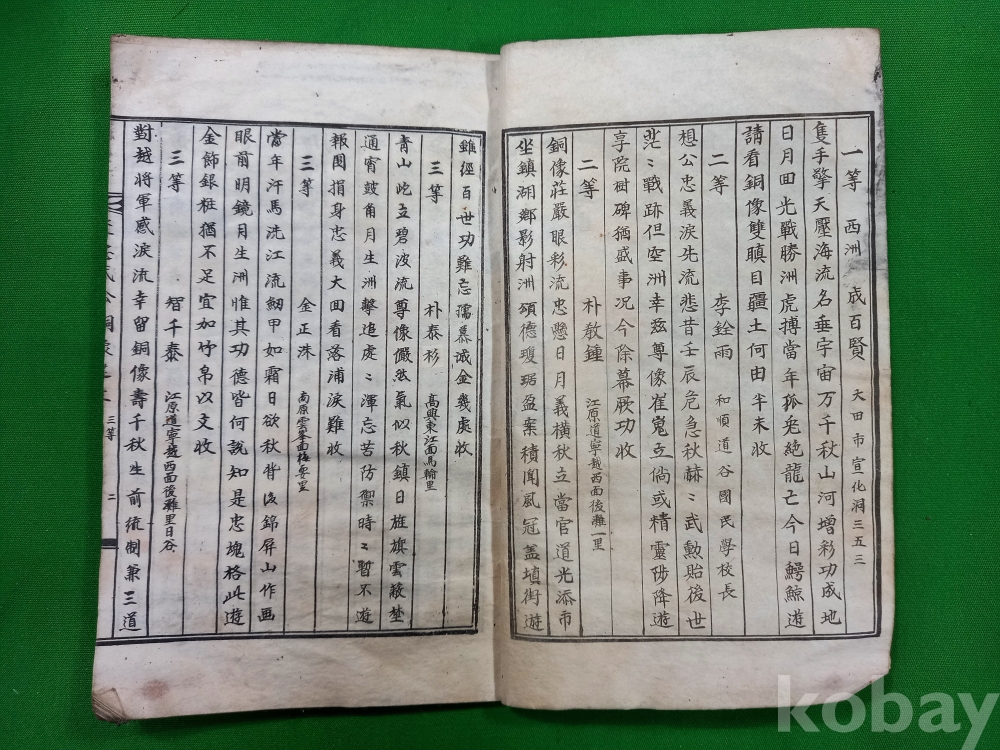 一等 西洲 成百賢 大田市宣化洞三五三
隻手擎天壓海流名垂宇宙万千秋山河增彩功成地
日月回光戰勝洲虎搏當年孤兎絶龍亡今日鰐鯨遊
請看銅像雙瞋目疆土何由半未收
二等 李銓雨 和順道谷國民學校長
想公忠義淚先流悲昔壬辰危急秋赫ミ武勳貽後世
茫ミ戰跡但空洲幸玆尊像崔嵬立倘或精靈陟降遊
享院樹碑猶盛事况今除幕厥功收
二等 朴敎鍾 江原道寧越西面後灘一里
銅像莊嚴眼彩流忠懸日月義橫秋立當官道光添市
坐鎮湖鄕影射洲頌德瓊琚盈案積聞風冠盖塡街遊
雖經百世功難忘孺慕诚金幾處收
三等 朴泰杉 高興東江面馬輪里
青山屹立碧波流尊像儼然氣似秋鎮日旌旗雲蔽埜
通宵鼓角月生洲擊追處ミ渾忘苦防禦時ミ暫不遊
報國捐身忠義大回看落浦淚難收
三等 金正洙 南原雲峯面梅要里
當年汗馬洗江流劒甲如霜日欲秋背後錦屏山作画
眼前明鏡月生洲惟其功德皆何說知是忠塊格此遊
金飾銀粧猶不足宜加竹帛以文收
三等 智千泰 江原道寧越西面後灘里日谷
對越將軍感淚流幸留銅像壽千秋生前統制兼三道
公銅像 三等 二
kobay